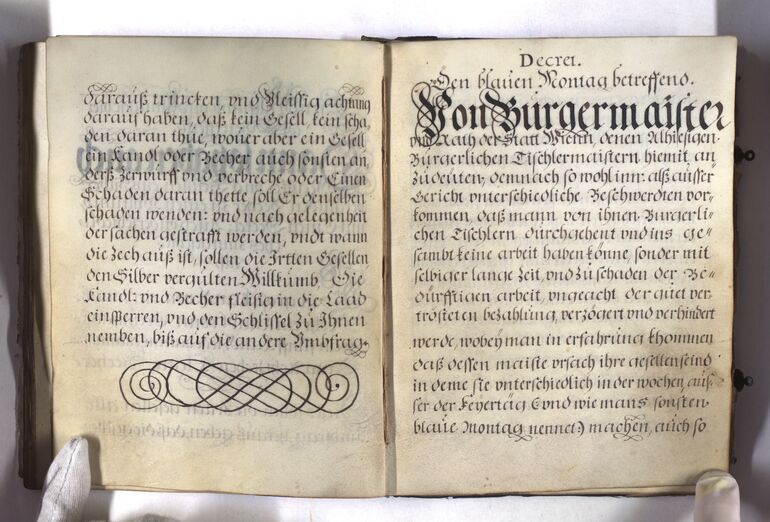 darauß trincken, vnd Vleissig achtung
darauf haben, daß kein Gesell, kein scha„
den daran thüe, wouer aber ein Gesell
ein Kandl, oder Becher auch sonsten an„
derß Zerwürff vnd verbreche oder Einen
Schaden daran thette soll Er denselben
schaden wenden: vnd nach gelegenheit
der sachen gestrafft werden, vndt wann
die Zech auß ist, sollen die Irtlen Gesellen
den Silber vergulten Willkumb, Die
Kandl: vnd Becher fleisig in die Laad
einsperren, vnd den Schlissel Zu Ihnen
nemben, biß auf die andere Vmbfrag.
Decret.
Den blauen Montag betreffend.
Von Bürgermaister
vnd Rath der Statt Wienn, denen Alhiesigen
Bürgerlichen Tischlermaistern hiemit an
Zudeuten, demnach so wohl inn: alß ausser
Gericht vnterschiedliche Beschwerdten vor„
kommen, daß mann von ihnen Burgerli„
chen Tischlern durchgehent vnd ins ge„
sambt keine arbeit haben könne, sonder mit
selbiger lange Zeit, vnd Zu schaden der Be„
dürfftigen arbeit, vngeacht der gutet ver„
trösteten bezahlung, verzögert vnd verhindert
werde, wobey man in erfahrung khommen
daß dessen maiste vrsach ihre gesellen seind
in deme sie vnterschiedlich in der wochen aus„
ser der Feyertäg (vnd wie mans sonsten
blaue Montag nennet) machen, auch so